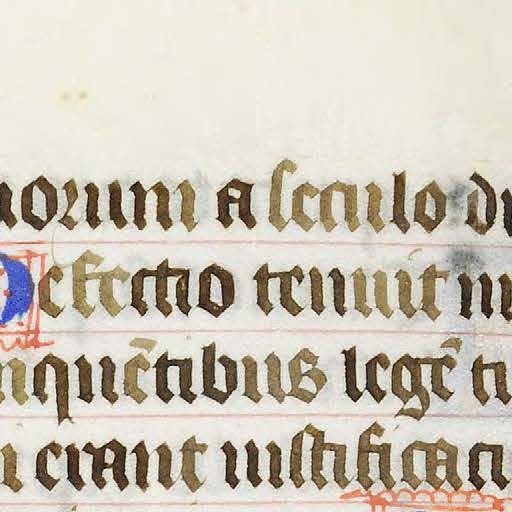 uorum a seculo d
Defectio tenuit m
nquētibus legē tu
i erant iustificaci